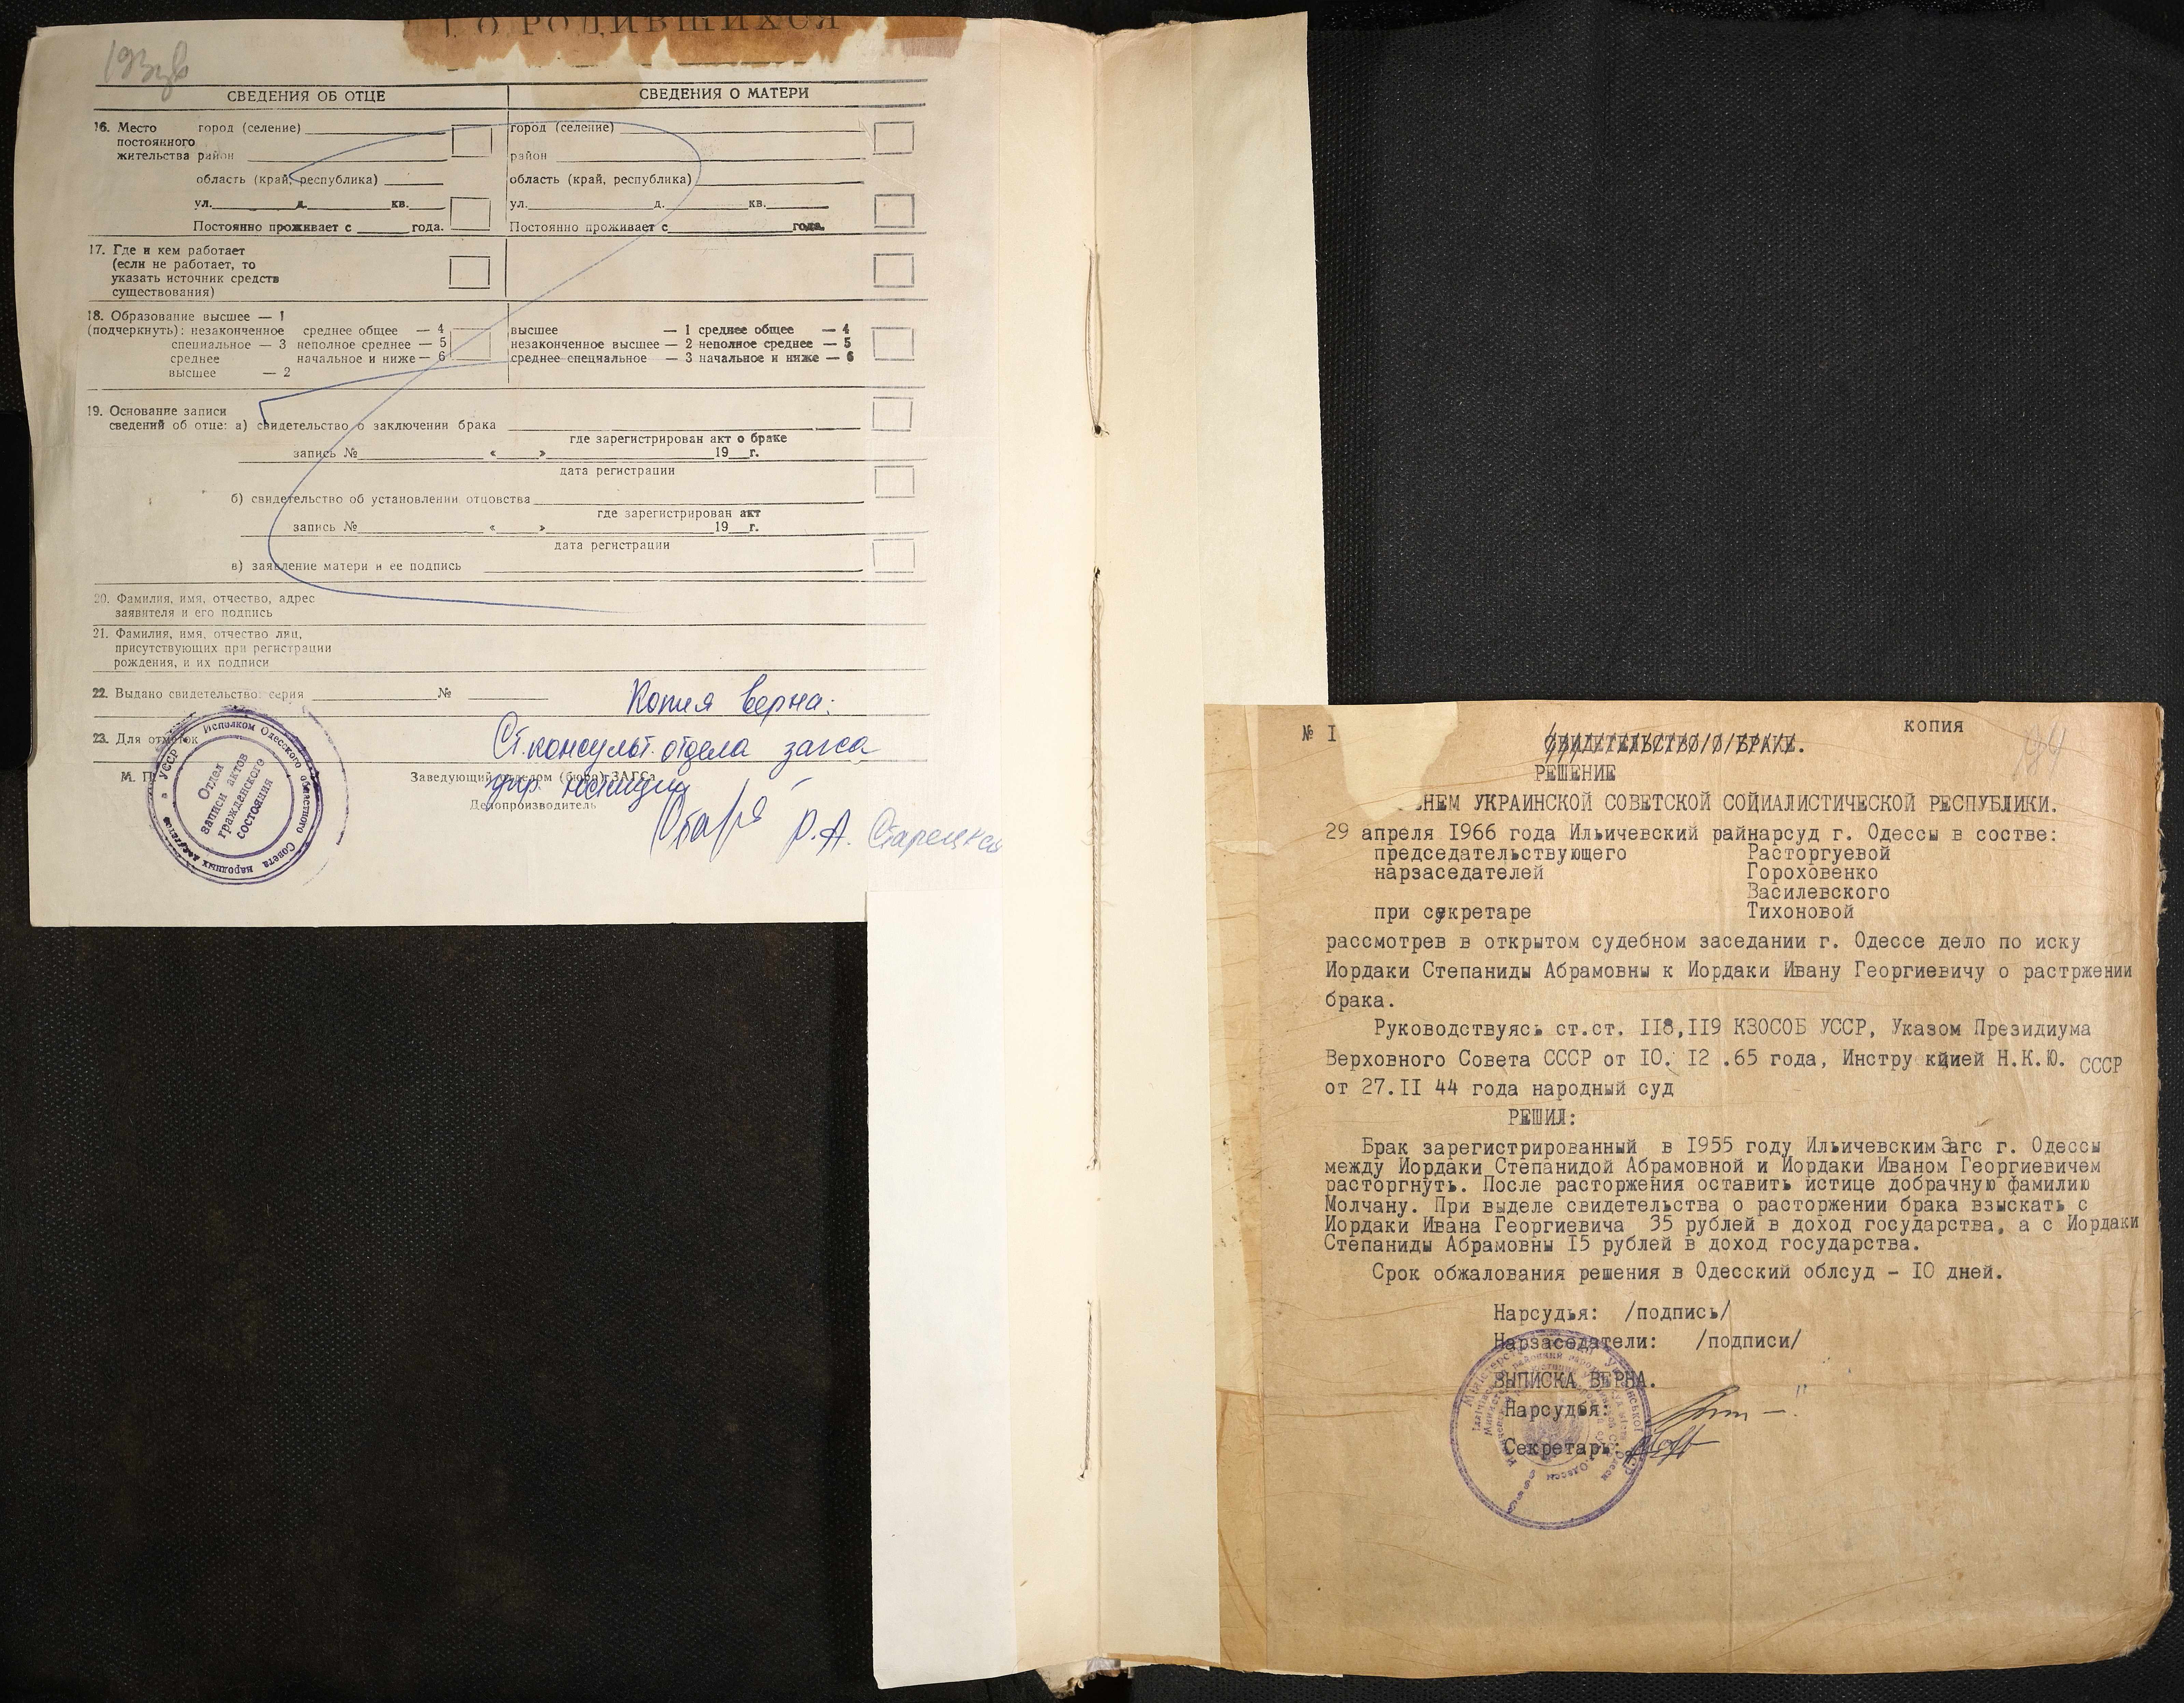 О РОДИВШИХСЯ
193
СВЕДЕНИЯ ОБ ОТЦЕ
СВЕДЕНИЯ О МАТЕРИ
16. Место город (селение)
постоянного
жительства район
область (край, республика)
ул. д. кв.
Постоянно проживает с года.
город (селение)
район
область (край, республика)
ул. д. кв.
Постоянно проживает с года.
17. Где и кем работает
(если не работает, то
указать источник средств
существования)
18. Образование высшее — 1
(подчеркнуть): незаконченное среднее общее — 4
специальное — 3 неполное среднее — 5
среднее начальное и ниже — 6
высшее — 2
высшее — 1 среднее общее — 4
незаконченное высшее — 2 неполное среднее — 5
среднее специальное — 3 начальное и ниже — 6
19. Основание записи
сведений об отце: а) свидетельство о заключении брака
где зарегистрирован акт о браке
запись № « » 19 г.
дата регистрации
б) свидетельство об установлении отцовства
где зарегистрирован акт
запись № « » 19 г.
дата регистрации
в) заявление матери и ее подпись
20. Фамилия, имя, отчество, адрес
заявителя и его подпись
21. Фамилия, имя, отчество лиц,
присутствующих при регистрации
рождения, и их подписи
22. Выдано свидетельство: серия №
Копия верна:
23. Для отметок
Ст. консульт. отдела загса
М. П.
Заведующий отделом (бюро) ЗАГСа
упр. юстиции
Делопроизводитель
Р.А. Старецкая
УССР Исполком Одесского областного Совета народных депутатов
Отдел
записи актов
гражданского
состояния
№ I
КОПИЯ
СВИДЕТЕЛЬСТВО О БРАКЕ.
РЕШЕНИЕ
ЕНЕМ УКРАИНСКОЙ СОВЕТСКОЙ СОЙИАЛИСТИЧЕСКОЙ РЕСПУБЛИКИ.
29 апреля 1966 года Ильичевский райнарсуд г. Одессы в состве:
председательствующего Расторгуевой
нарзаседателей Гороховенко
Василевского
при секретаре Тихоновой
рассмотрев в открытом судебном заседании г. Одессе дело по иску
Иордаки Степаниды Абрамовны к Иордаки Ивану Георгиевичу о растржении
брака.
Руководствуясь ст.ст. II8,II9 КЗОСОБ УССР, Указом Президиума
Верховного Совета СССР от IO. I2 .65 года, Инстру кцией Н.К.Ю. СССР
от 27.II 44 года народный суд
РЕШИЛ:
Брак зарегистрированный в I955 году Ильичевским Загс г. Одессы
между Иордаки Степанидой Абрамовной и Иордаки Иваном Георгиевичем
расторгнуть. После расторжения оставить истице добрачную фамилию
Молчану. При выделе свидетельства о расторжении брака взыскать с
Иордаки Ивана Георгиевича 35 рублей в доход государства, а с Иордаки
Степаниды Абрамовны I5 рублей в доход государства.
Срок обжалования решения в Одесский облсуд - IO дней.
Нарсудья: /подпись/
Нарзаседатели: /подписи/
ВЫПИСКА ВЕРНА.
Нарсудья:
Секретарь: